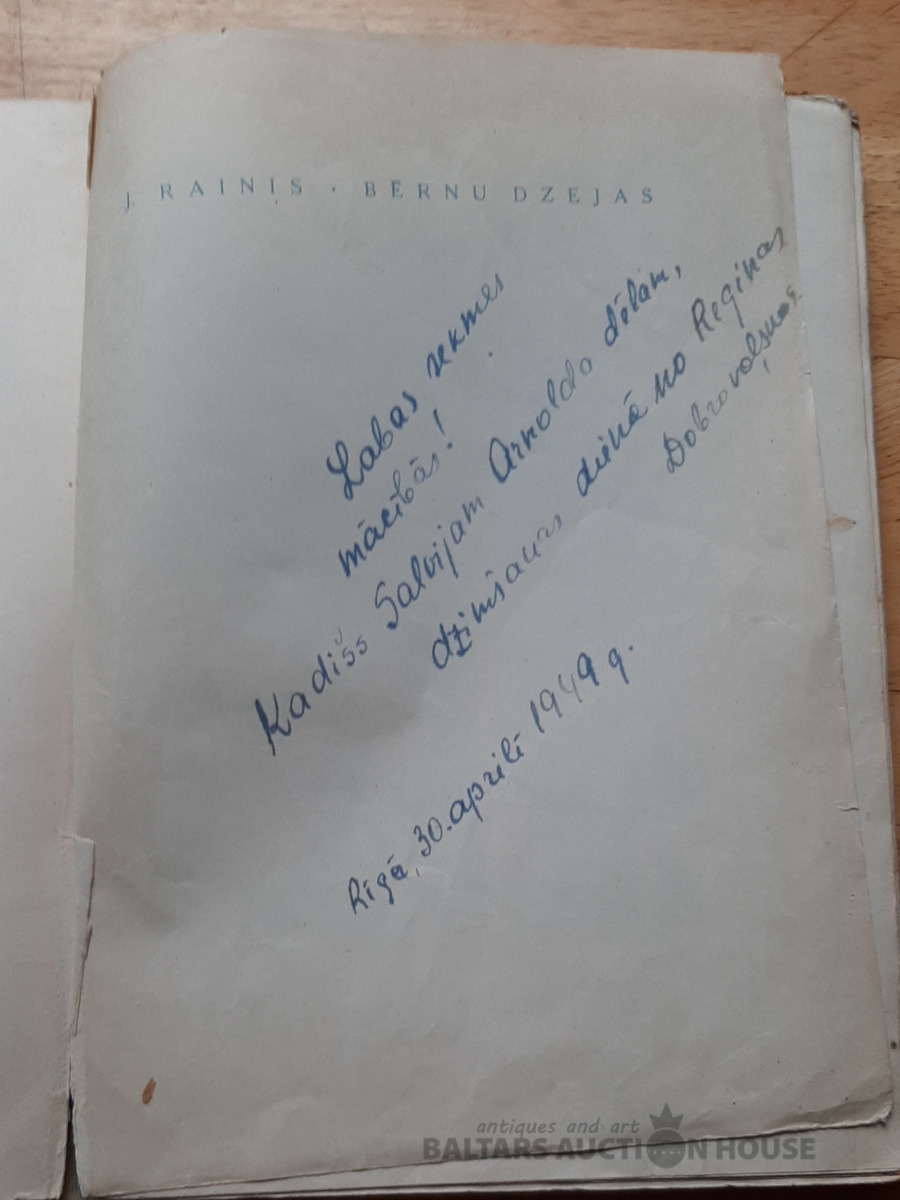 J. RAINIS · BĒRNU DZEJAS
Labas sekmes
mācībās!
Kadišs Salvijam Arnolda dēlam,
dzimšanas dienā no Reginas
Dobrovoļskas
Rīgā, 30. aprīlī 1949 g.
antiques and art
BALTARS AUCTION HOUSE